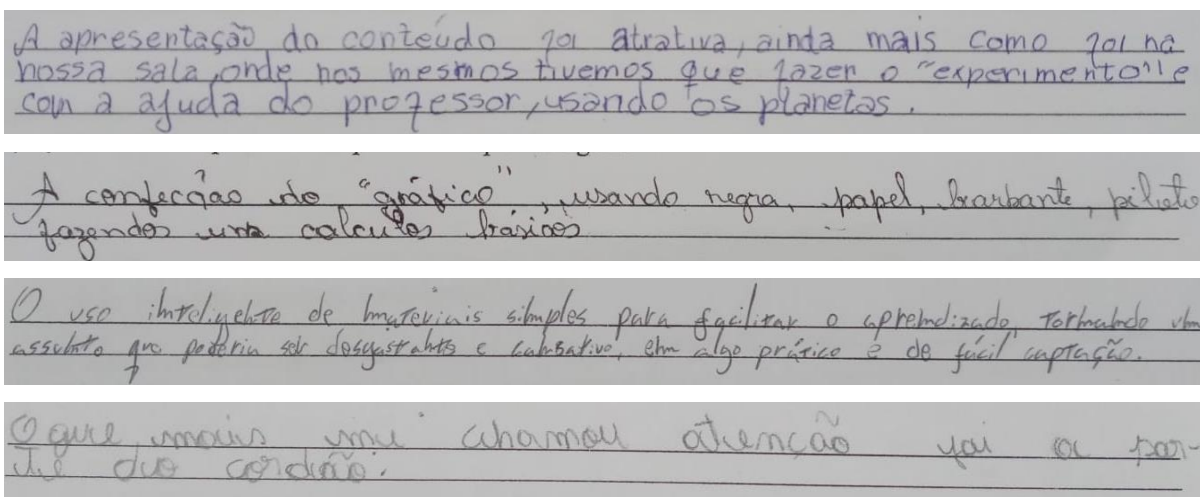 A apresentação do conteúdo foi atrativa, ainda mais como foi na
nossa sala, onde nos mesmos tivemos que fazer o "experimento" e
com a ajuda do professor, usando os planetas.
A confecção do "gráfico", usando regra, papel, barbante, piloto
fazendo uns calculos básicos
O uso inteligente de materiais simples para facilitar o aprendizado, tornando um
assunto que poderia ser desgastante e cansativo, em algo prático e de fácil captação.
O que mais me chamou atenção foi a par-
te do cordão.